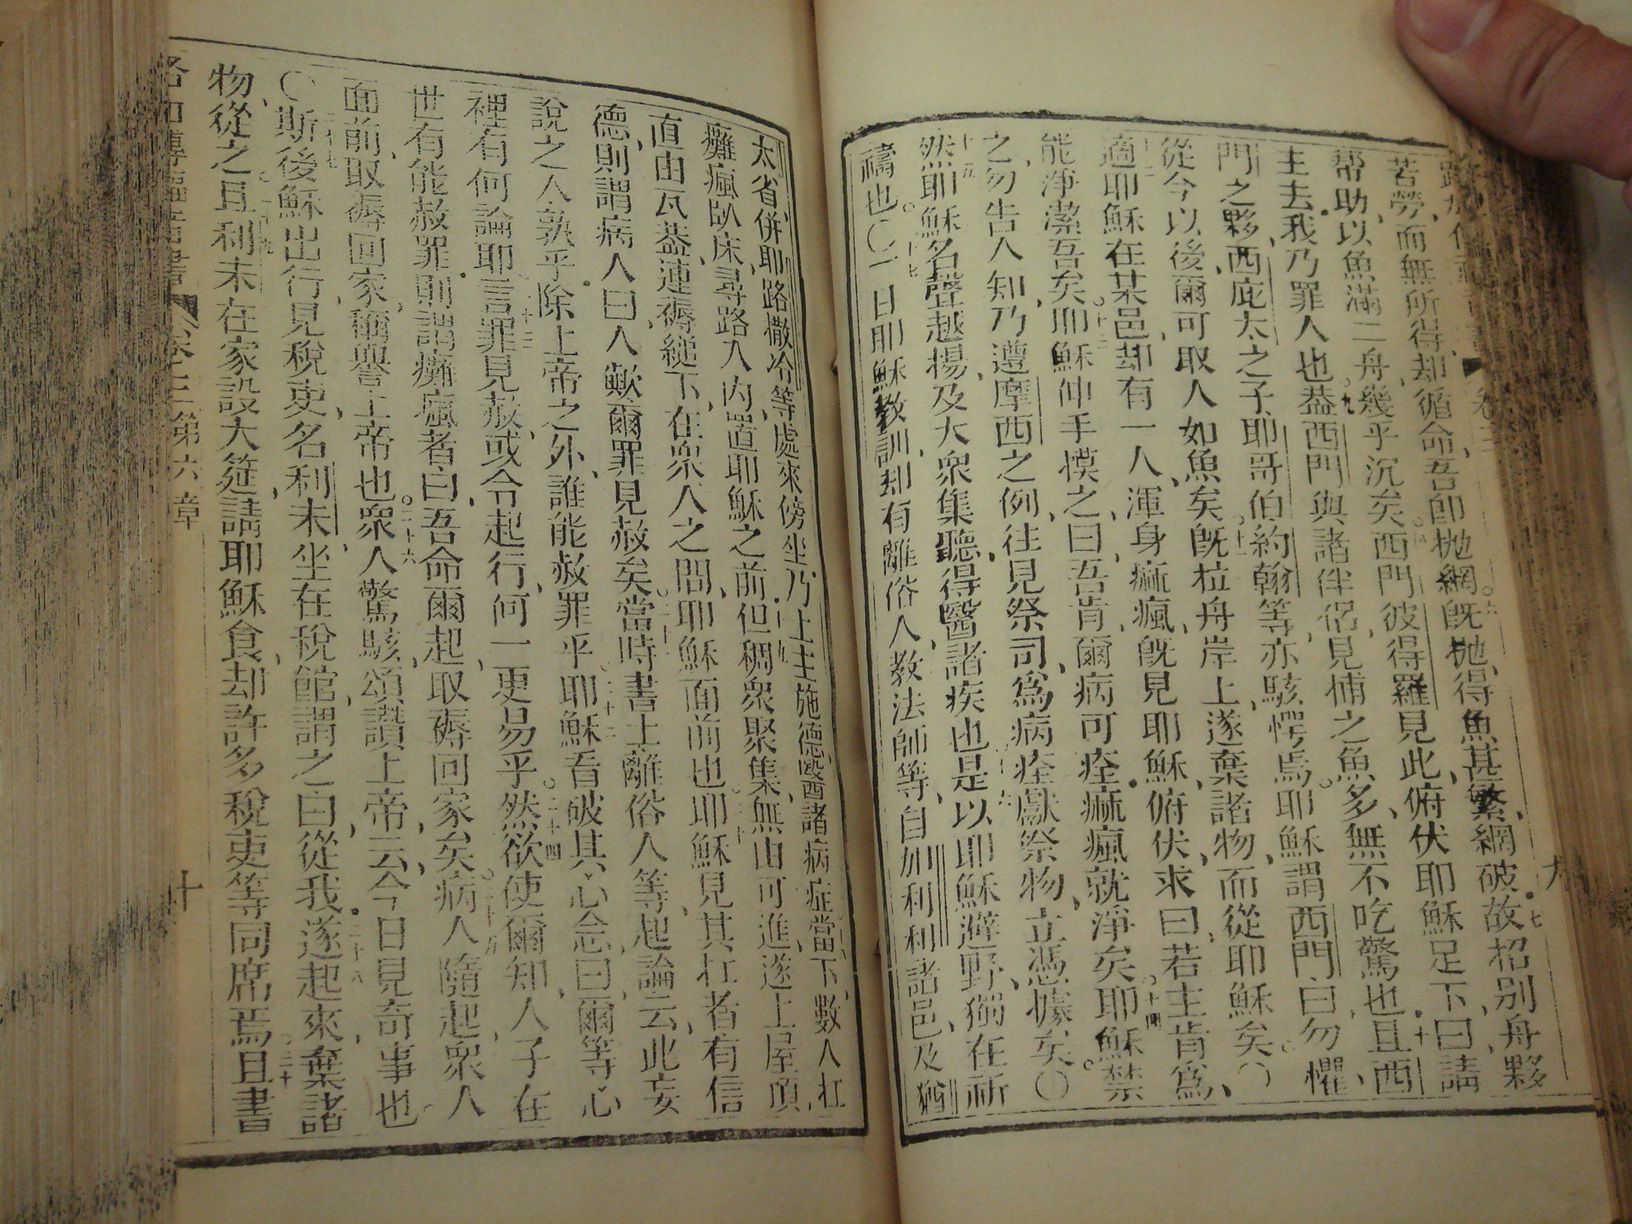 苦勞而無所得却循命吾卽抛網旣抛得魚甚繁網破故招别舟夥
帮助以魚滿二舟幾乎沉矣西門彼得羅見此俯伏耶穌足下曰請
主去我乃罪人也葢西門與諸伴侶見捕之魚多無不吃驚也且西
門之夥西庇太之子耶哥伯約翰等亦駭愕焉耶穌謂西門曰勿懼
從今以後爾可取人如魚矣旣拉舟岸上遂棄諸物而從耶穌矣〇
適耶穌在某邑却有一人渾身痲瘋旣見耶穌俯伏求曰若主肯爲
能淨潔吾矣耶穌伸手摸之曰吾肯爾病可痊痲瘋就淨矣耶穌禁
之勿告人知乃遵摩西之例往見祭司爲病痊獻祭物立憑據矣〇
然耶穌名聲越揚及大衆集聽得醫諸疾也是以耶穌避野獨在祈
禱也〇一日耶穌教訓却有離俗人教法師等自加利利諸邑及猶
太省併耶路撒冷等處來傍坐乃上主施德醫諸病症當下數人扛
癱瘋臥床尋路入內置耶穌之前但稠衆聚集無由可進遂上屋頂
直由瓦葢連褥縋下在衆人之間耶穌面前也耶穌見其扛者有信
德則謂病人曰人歟爾罪見赦矣當時書士離俗人等起論云此妄
說之人孰乎除上帝之外誰能赦罪乎耶穌看破其心念曰爾等心
裡有何論耶言罪見赦或令起行何一更易乎然欲使爾知人子在
世有能赦罪則謂癱瘋者曰吾命爾起取褥回家矣病人隨起衆人
面前取褥回家稱譽上帝也衆人驚駭頌讚上帝云今日見奇事也
〇斯後穌出行見稅吏名利未坐在稅館謂之曰從我遂起來棄諸
物從之且利未在家設大筵請耶穌食却許多稅吏等同席焉且書
卷三第六章 十